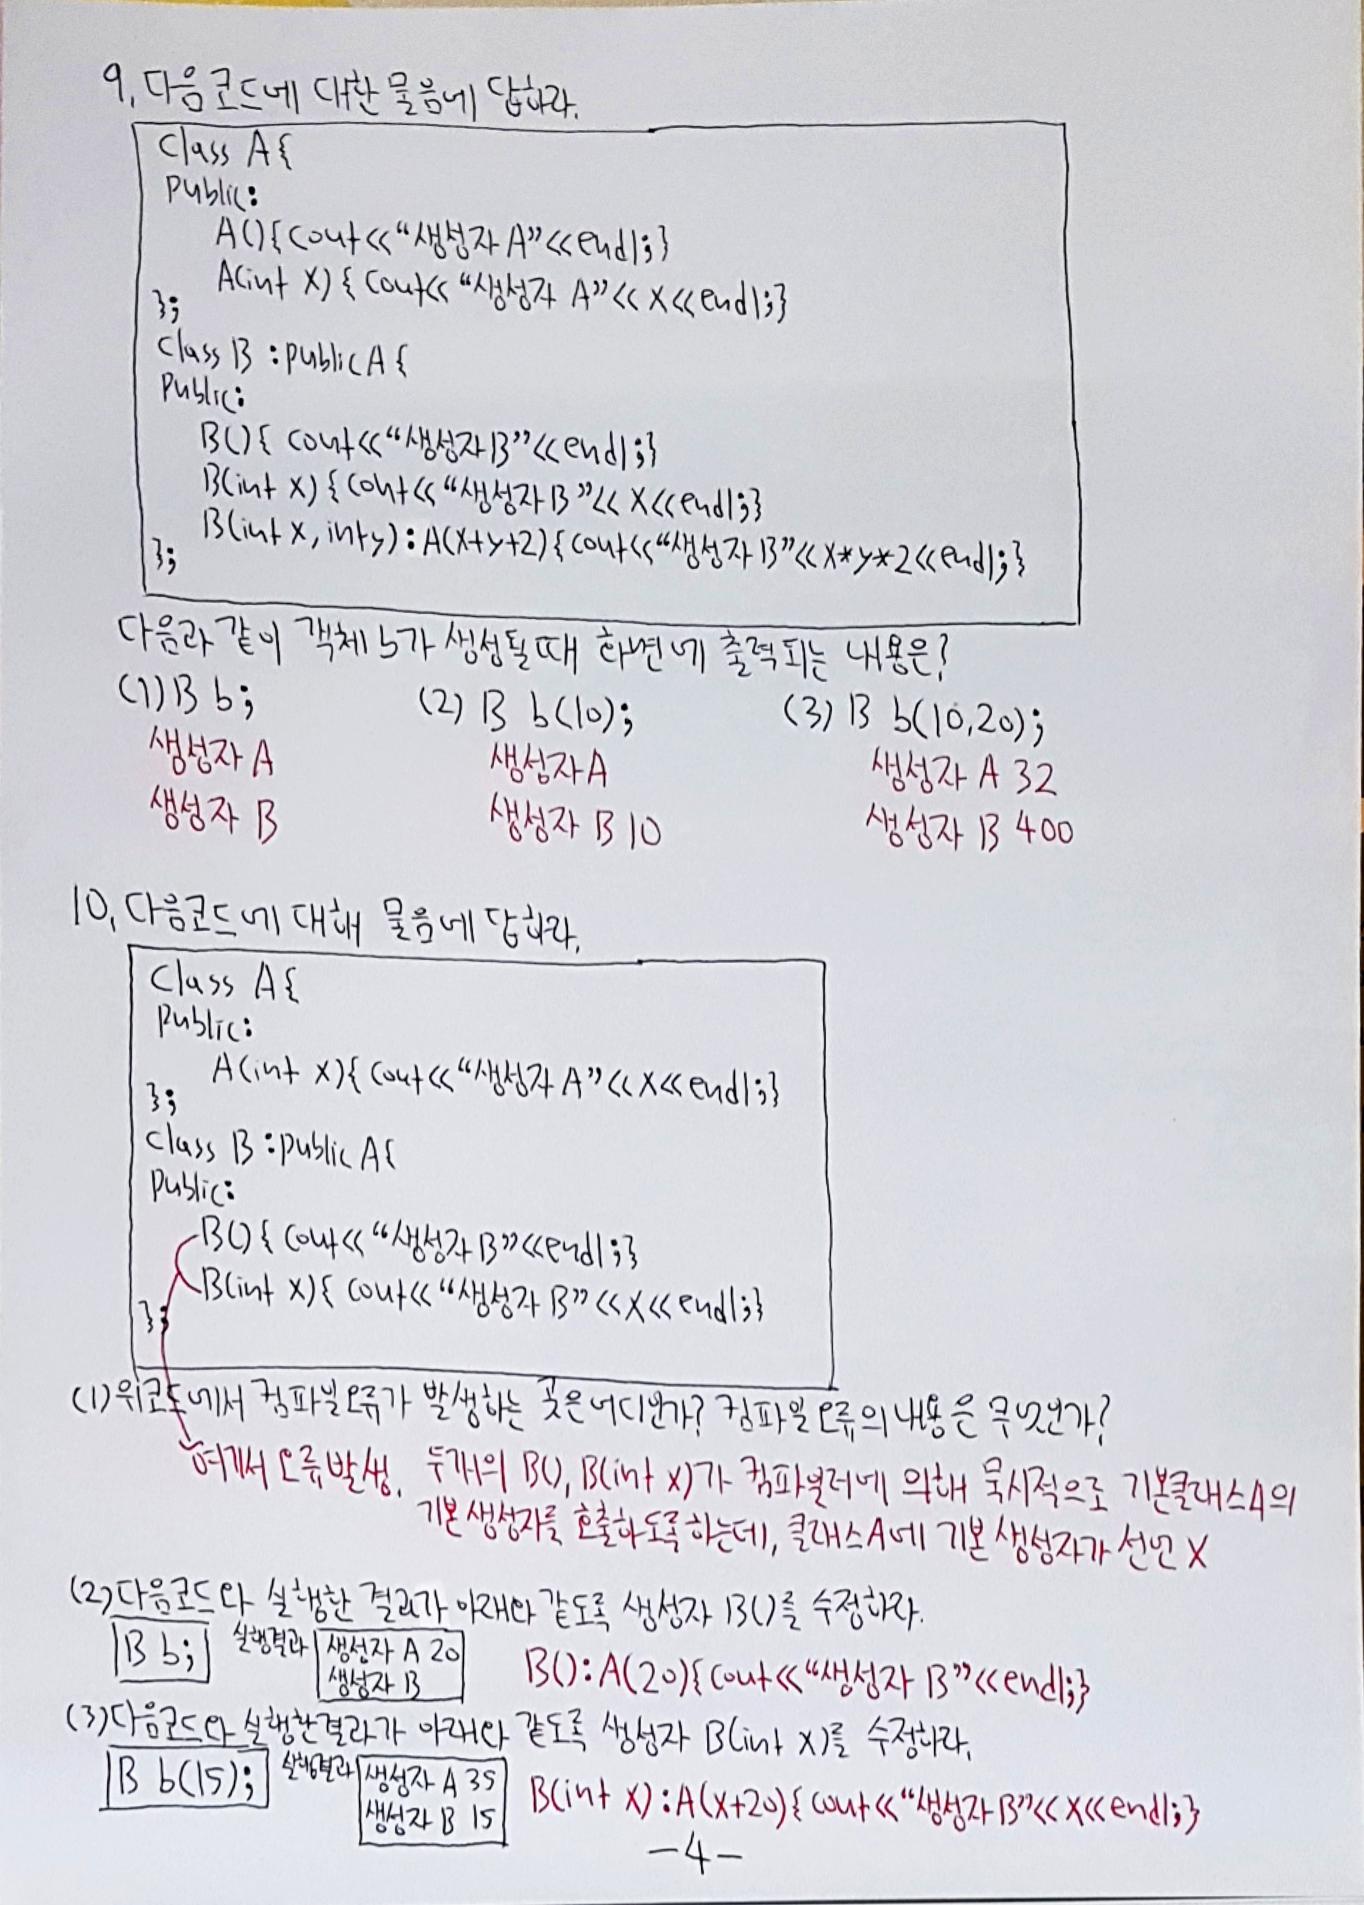 9. 다음코드에 대한 물음에 답하라.
Class A{
Public:
A(){cout<<“생성자 A”<<endl;}
A(int x) { cout<< “생성자 A”<< x<<endl;}
};
Class B : public A {
Public:
B(){ cout<<“생성자B”<<endl;}
B(int x) { cout<< “생성자B”<< x<<endl;}
B(int x, int y) : A(x+y+2) {cout<<“생성자 B”<< x*y*2<<endl;}
};
다음과 같이 객체 b가 생성될때 화면에 출력되는 내용은?
(1) B b; (2) B b(10); (3) B b(10,20);
생성자 A 생성자A 생성자 A 32
생성자 B 생성자 B 10 생성자 B 400
10. 다음코드에 대해 물음에 답하라.
Class A{
Public:
A(int x){ cout<<“생성자 A”<<x<<endl;}
};
Class B : public A{
Public:
B(){ cout<< “생성자B”<<endl;}
B(int x){ cout<< “생성자 B” <<x<<endl;}
};
(1) 위코드에서 컴파일오류가 발생하는 곳은어디인가? 컴파일 오류의 내용은 무엇인가?
여기서 오류발생. 두개의 B(), B(int x)가 컴파일러에 의해 묵시적으로 기본클래스A의
기본생성자를 호출하도록하는데, 클래스A에 기본 생성자가 선언 X
(2)다음코드와 실행한 결과가 아래와 같도록 생성자 B()를 수정하라.
B b; 실행결과 생성자 A 20 B(): A(20){cout<<“생성자 B”<<endl;}
생성자 B
(3)다음코드와 실행한결과가 아래와 같도록 생성자 B(int x)를 수정하라.
B b(15); 실행결과 생성자 A 35 B(int x) : A(x+20) { cout<<“생성자B”<< x<<endl;}
생성자 B 15
-4-